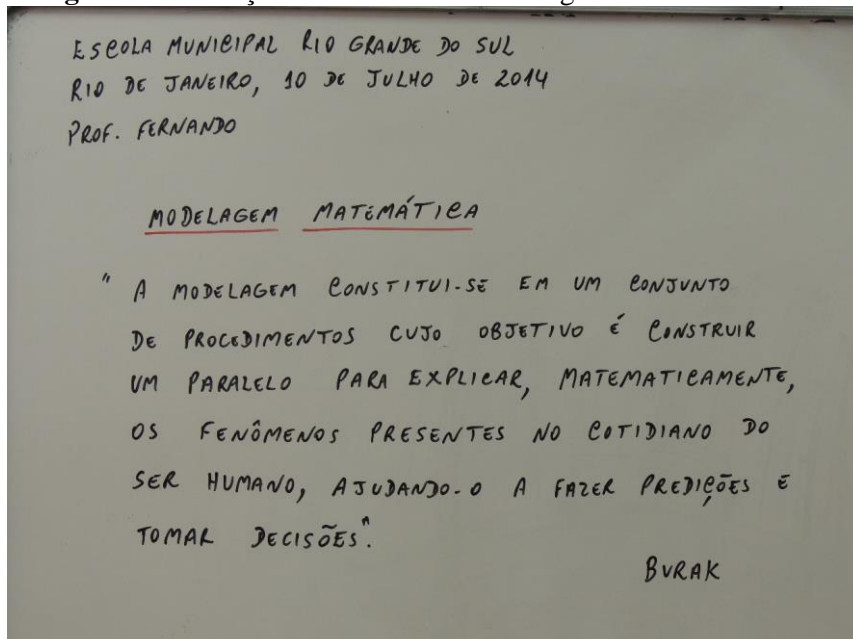 ESCOLA MUNICIPAL RIO GRANDE DO SUL
RIO DE JANEIRO, 10 DE JULHO DE 2014
PROF. FERNANDO
MODELAGEM MATEMÁTICA
" A MODELAGEM CONSTITUI-SE EM UM CONJUNTO
DE PROCEDIMENTOS CUJO OBJETIVO É CONSTRUIR
UM PARALELO PARA EXPLICAR, MATEMATICAMENTE,
OS FENÔMENOS PRESENTES NO COTIDIANO DO
SER HUMANO, AJUDANDO-O A FAZER PREDIÇÕES E
TOMAR DECISÕES".
BURAK